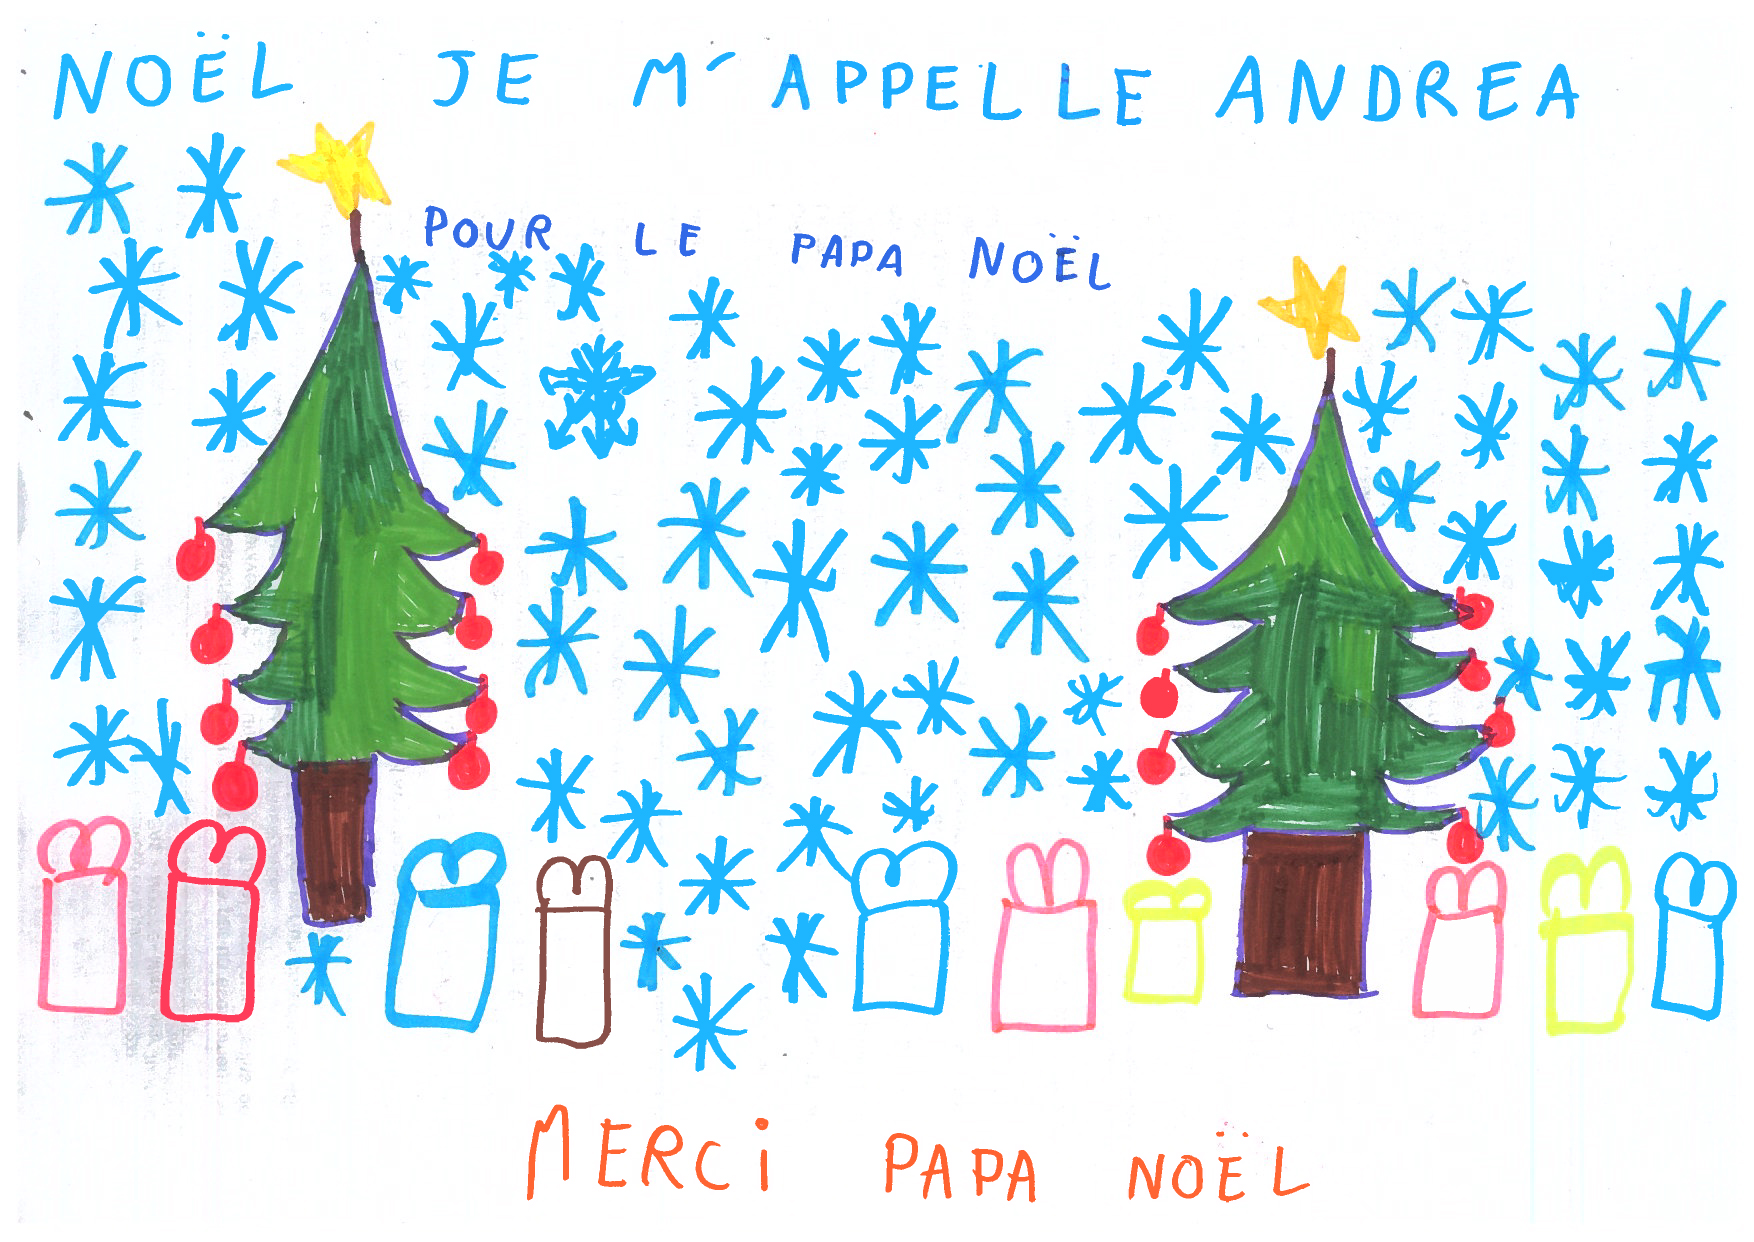 NOËL JE M'APPELLE ANDREA
POUR LE PAPA NOËL
MERCi PAPA NOËL